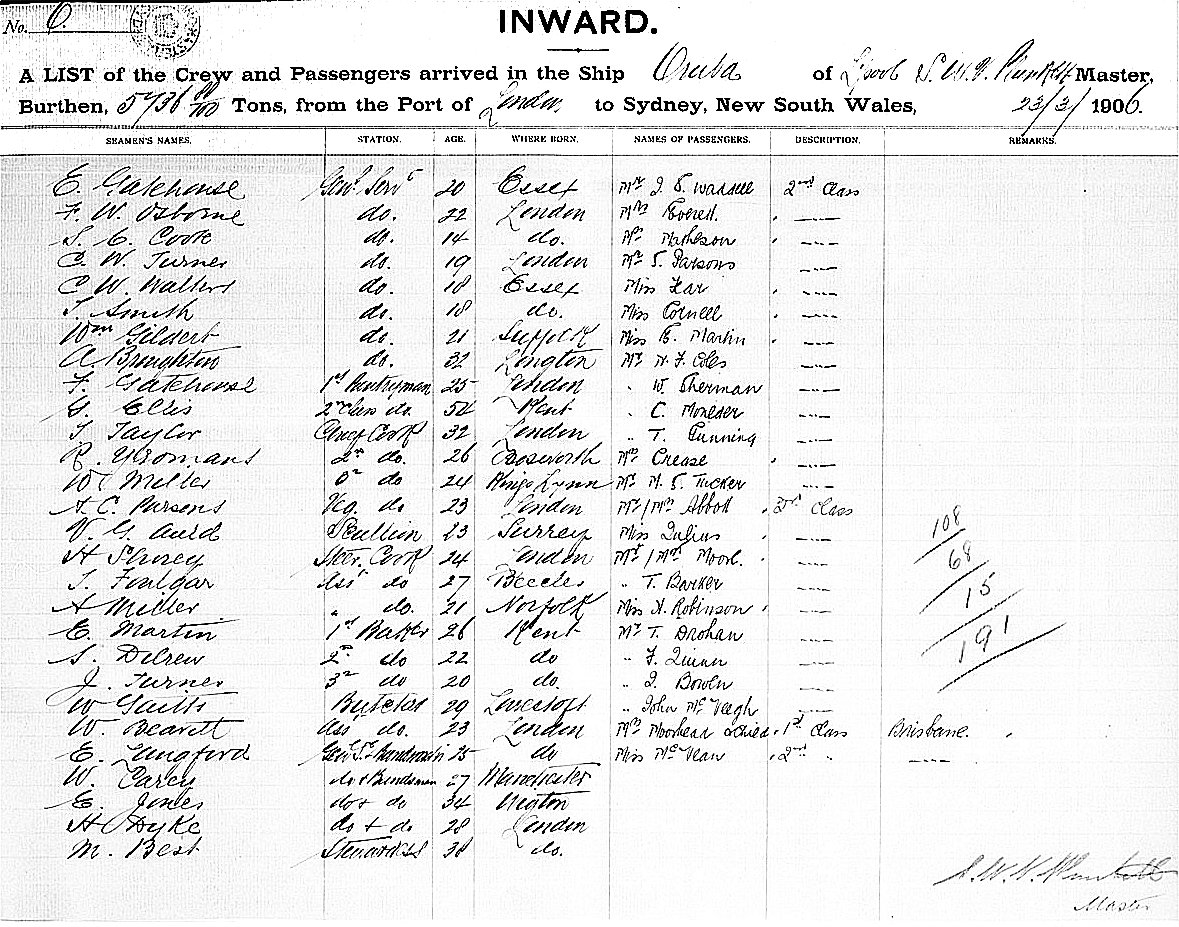 No. 6.
INWARD.
A LIST of the Crew and Passengers arrived in the Ship Oruba of L'pool S. W. V. Plunkett Master,
Burthen, 5736 80/100 Tons, from the Port of London. to Sydney, New South Wales, 23/3/1906.
SEAMEN'S NAMES. STATION. AGE. WHERE BORN. NAMES OF PASSENGERS. DESCRIPTION. REMARKS.
E. Gatehouse Genl. Servt 20 Essex Mr J. S. Waddell 2nd Class
F. W. Osborne do. 22 London Mrs Everett.
S. C. Cook do. 14 do. Mr Matheson
C. W. Turner do. 19 London Mr S. Parsons
C. W. Walters do. 18 Essex Miss Kar
T. Smith do. 18 do. Miss Cornell
Wm Gildert do. 21 Suffolk Miss E. Martin
A. Broughton do. 32 Longton Mr H. F. Coles
F. Gatehouse 1st Pantryman 25 London " W. Sherman
G. Ellis 2nd Class do. 54 Kent " C. Moulder
T. Taylor Chief Cook 32 London " T. Gunning
R. Yeomans 2nd do. 26 Mrs Crease
W. Miller 3rd do 24 Kings Lynn Mr M. S. Tucker
A. C. Parsons Veg. do 23 London Mr/Mrs Abbott 3rd Class
V. G. Scullion 23 Surrey Miss Julius
H Storey Steer. Cook 24 London Mr/Mrs Moore.
T. Foulgar Asst do 27 Beccles " T. Barker
A Miller " do. 21 Norfolk Miss H. Robinson
E. Martin 1st Baker 26 Kent Mr T. Drohan
S. Delrew 2nd do 22 do " F. Quinn
J. Turner 3rd do 20 do. " J. Bowen
W Butcher 29 Lowestoft " John McVeagh
W. Beavitt Asst do. 23 London Mrs Moorhead & Child 1st Class Brisbane.
E. Langford 25 do Miss McVean 2nd "
W. Carey do & Bandsman 27 Manchester
E. Jones do & do 34
H Dyke do & do 28 London
M. Best Stewardess 38 do.
108
68
15
191
S. W. V. Plunkett
Master